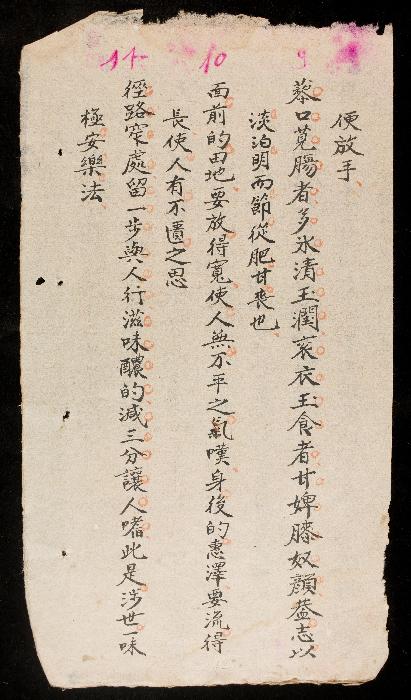 便放手
9
藜口莧腸者多氷清玉潤衮衣玉食者甘婢膝奴顏蓋志以
淡泊明而節從肥甘喪也
10
面前的田地要放得寬使人無不平之氣嘆身後的惠澤要流得
長使人有不匱之思
11
徑路窄處留一步與人行滋味醲的減三分讓人嗜此是涉世一味
極安樂法